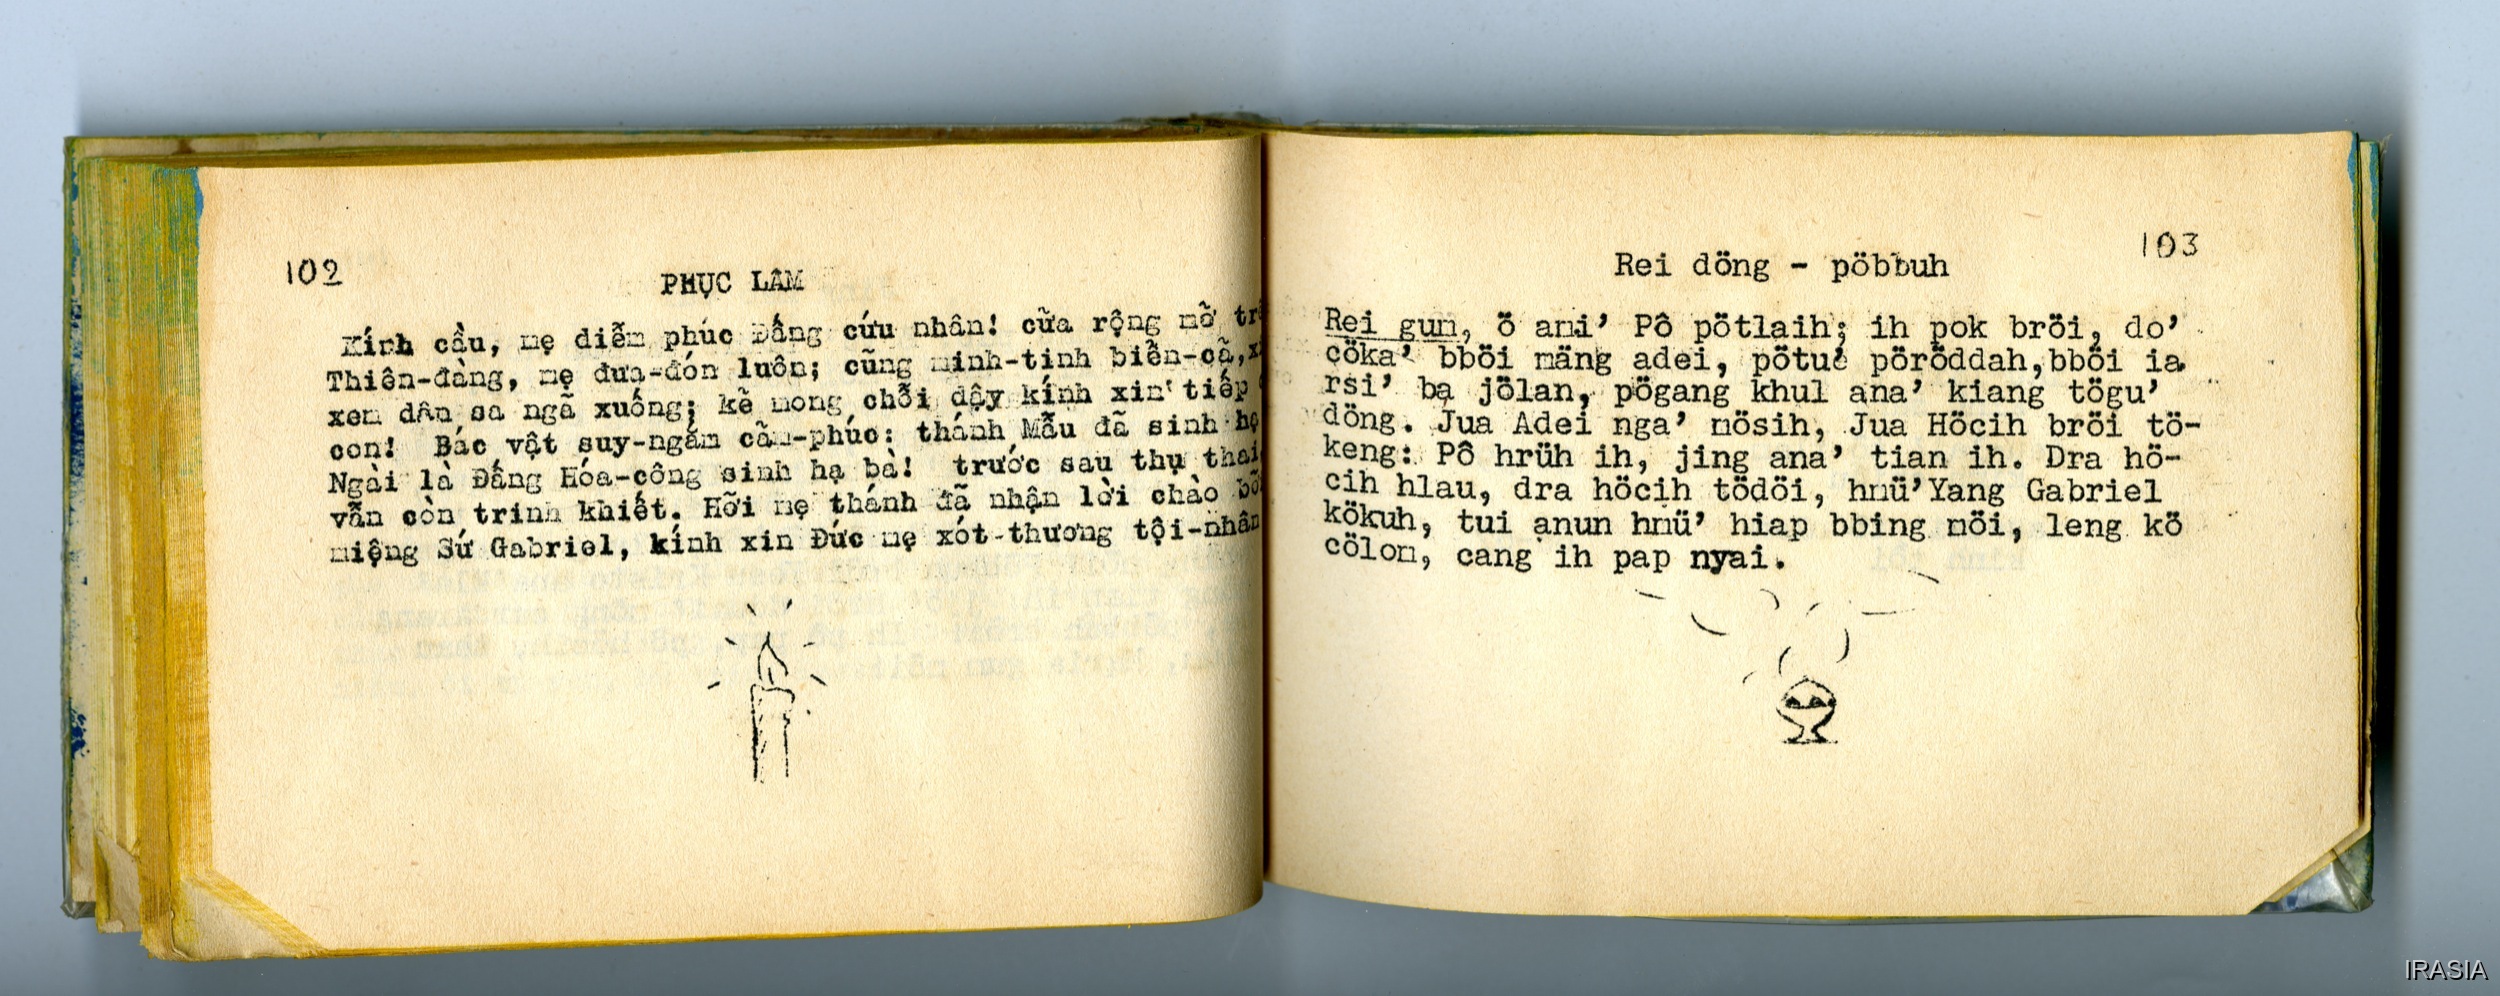 102
PHỤC LÂM
Kính cầu, mẹ diễm phúc Đấng cứu nhân! cửa rộng mở
Thiên-đàng, mẹ đưa-đón luôn; cũng minh-tinh biển-cả,
xem dân sa ngã xuống; kẻ mong chỗi dậy kính xin tiếp
con! Bác vật suy-ngắm cảm-phúc: thánh Mẫu đã sinh hạ
Ngài là Đấng Hóa-công sinh hạ bà! trước sau thụ thai
vẫn còn trinh khiết. Hỡi mẹ thánh đã nhận lời chào
miệng Sứ Gabriel, kính xin Đức mẹ xót-thương tội-nhân
103
Rei döng - pöbbuh
Rei gum, ö ami' Pô pötlaih; ih pok bröi, do'
cöka' bböi mäng adei, pötuê pöröddah,bböi ia
rsi' bạ jölan, pögang khul ana' kiang tögu'
döng. Jua Adei nga' mösih, Jua Höcih bröi tö-
keng: Pô hrüh ih, jing ana' tian ih. Dra hö-
cih hlau, dra höcih tödöi, hmü'Yang Gabriel
kökuh, tui anun hmü' hiap bbing möi, leng kö
cölom, cang ih pap nyai.
IRASIA